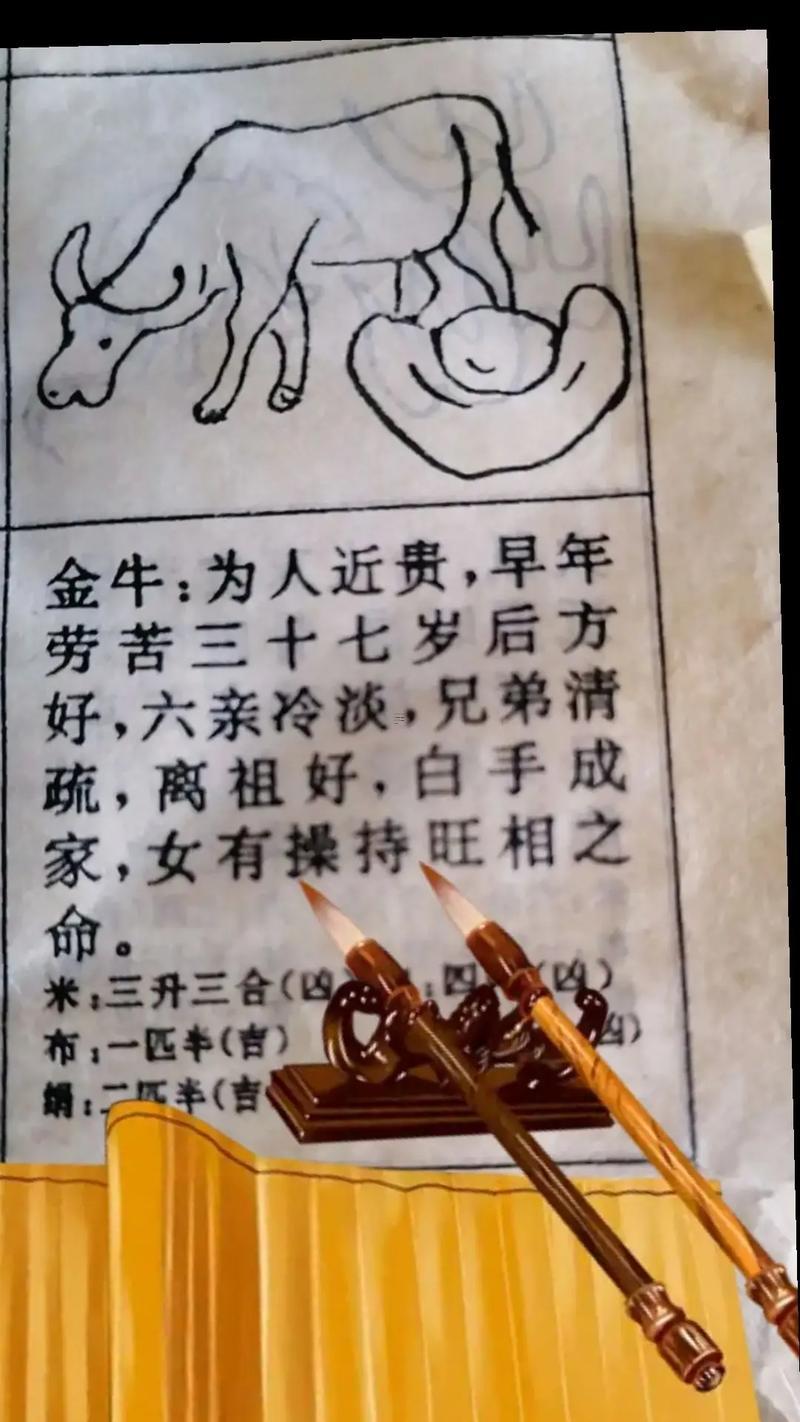 金牛:为人近贵,早年
劳苦三十七岁后方
好,六亲冷淡,兄弟清
疏,离祖好,白手成
家,女有操持旺相之
命。
米:三升三合(凶 :四 (凶)
布:一匹半(吉) 凶)
绢:二匹半(吉